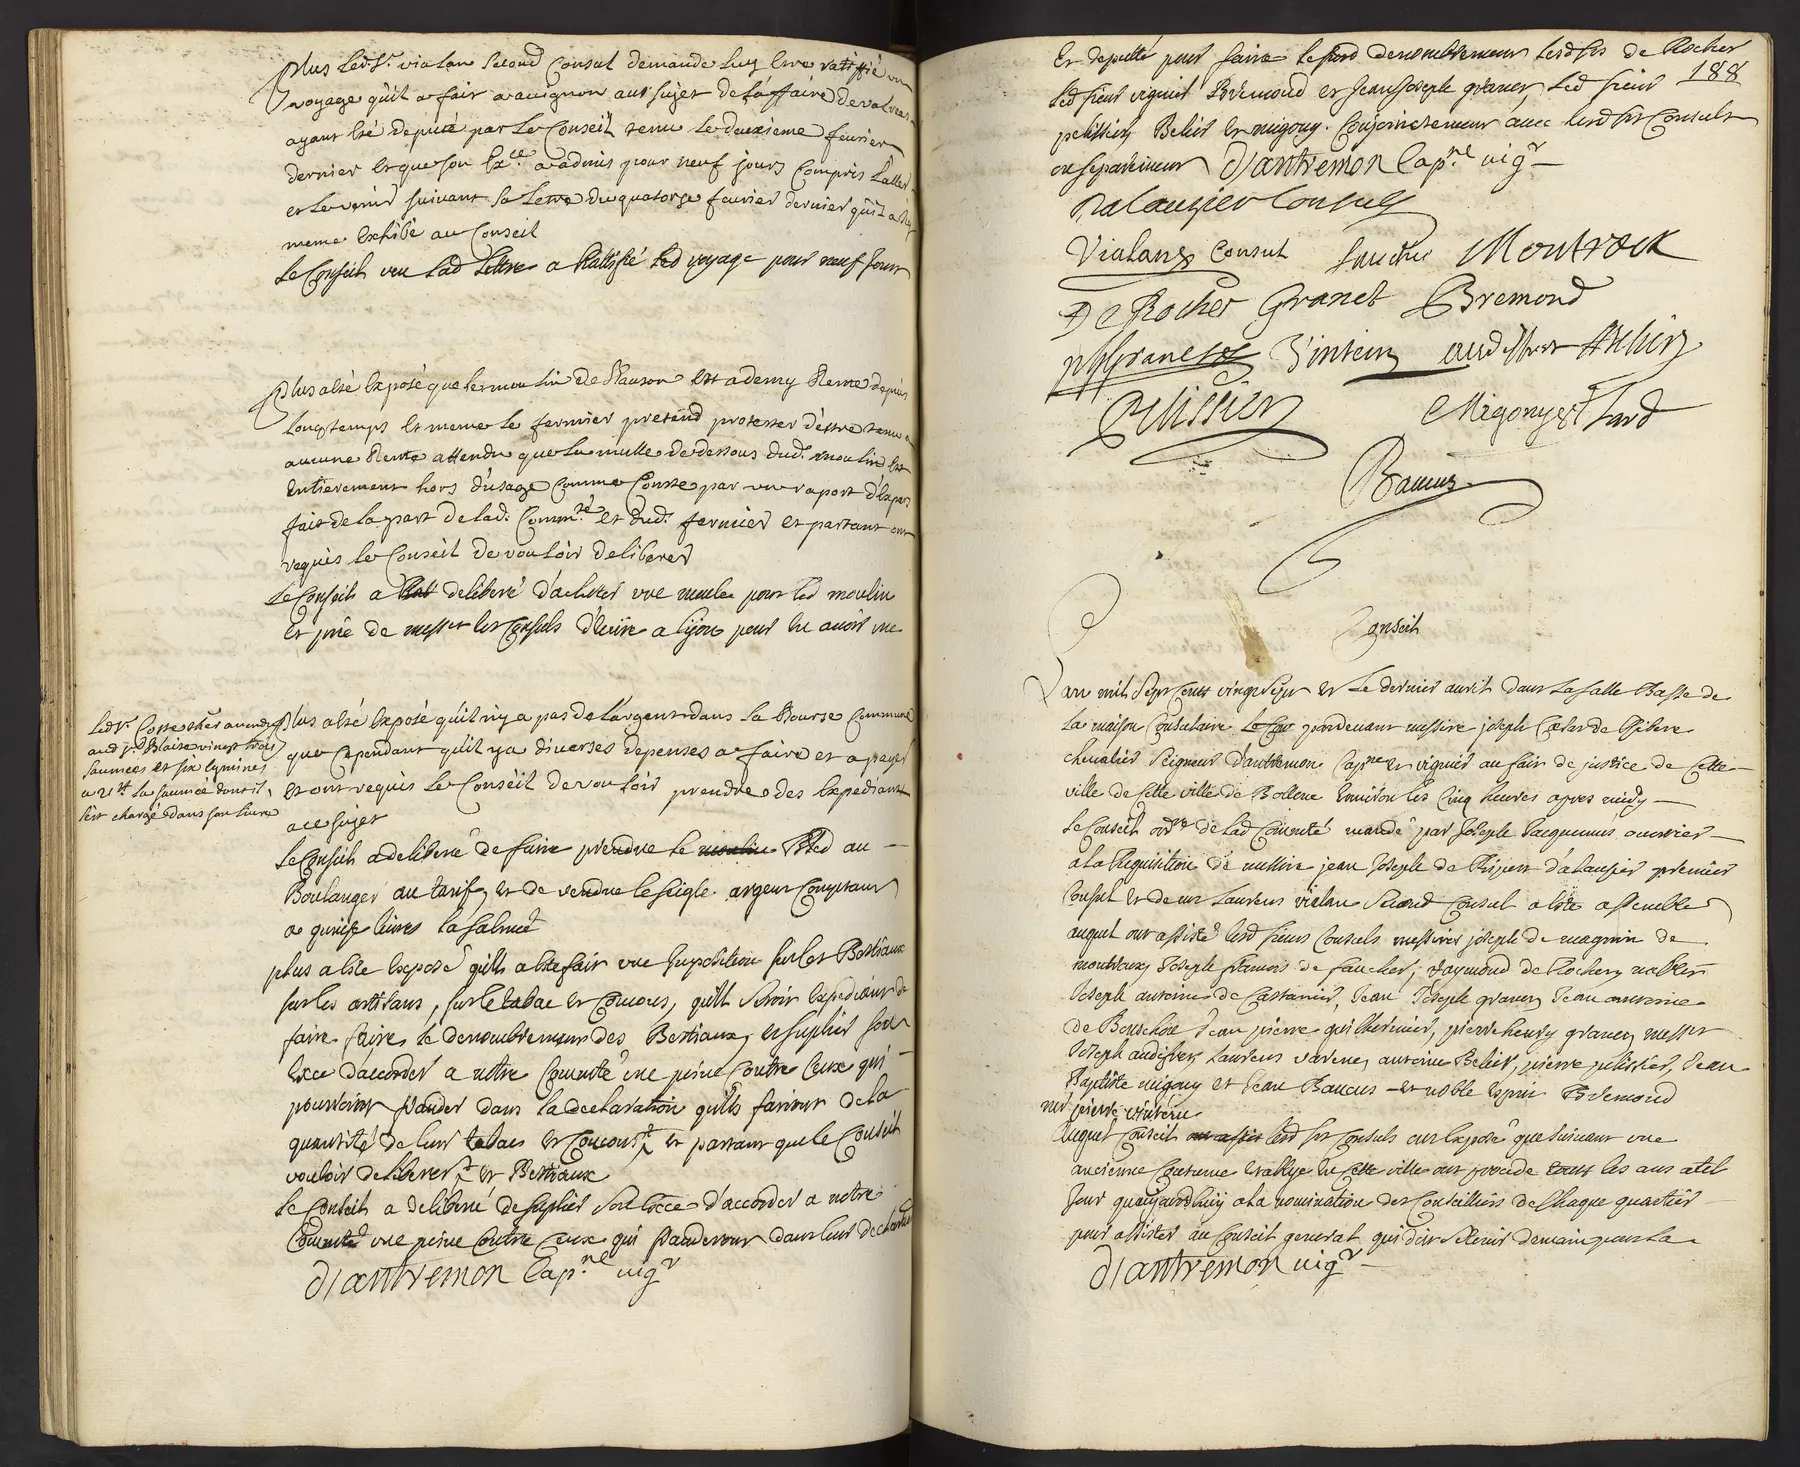 Plus led. Sr. vialan second Consul demande luy estre ratiffié un
voyage qu'il a fait a avignon au sujet de l'affaire de valreas
ayant été deputé par le Conseil tenu le deuxieme fevrier
dernier et que son Exce. a admis pour neuf jours Compris l'aller
et le venir suivant sa lettre du quatorze fevrier dernier qu'il a
meme Exhibé au Conseil
Le Conseil veu lad lettre a Rattiffié led voyage pour neuf jours
Plus a été exposé que le moulin de Bauson est a demy Rente depuis
longtemps et meme le fermier pretend protester d'estre tenu a
aucune Rente attendu que la mulle de dessous dud. moulin est
entierement hors d'usage Comme Conste par un raport d'expers
fait de la part de lad. Commté. et dud. fermier et partant ont
requis le Conseil de vouloir deliberer
Le Conseil a deliberé d'achetter une meule pour led moulin
et prie de messrs les Consuls d'ecrire a lijon pour en avoir une
Plus a été exposé qu'il n'y a pas de l'argent dans la Bourse Commune
que Cependant qu'il y a diverses depenses a faire et a payer
et ont requis le Conseil de vouloir prendre des Expediants
a ce sujet
Le Conseil a deliberé de faire prendre le moulin Bled au
Boulanger au tarif, et de vendre le seigle argent Comptant
a quinze livres la salmée
plus a été exposé qu'ils a été fait une Imposition sur les Bestiaux
sur les artisans, sur le tabac et Cocons, qu'il seroit expedient de
faire faire le denombrement des Bestiaux, et suplier son
Exce d'accorder a notre Comunté une peine Contre Ceux qui
pourroint frauder dans la declaration qu'ils fairont de la
quantité de leur tabacs et Cocons, et partant que le Conseil
vouloir deliberer et Bestiaux
Le Conseil a deliberé de suplier son Exce d'accorder a notre
Comunté une peine Contre Ceux qui frauderont dans leur declaration
d'antremon Capne. vigr
aud sr. Blaise vingt trois
saumées et six eymines
la saumée dont il
s'est chargé dans son livre
188
Et deputté pour faire le denombrement lesd srs de Rocher
led sieur viguier Bremond et Jean Joseph granet, led sieur
pelissier Belier et migony Conjointement avec lesd srs Consuls
ou separement d'antremon Capne. vigr
Dalauzier Consul
Vialan Consul faucher Montrock
De Rocher Granet Bremond
granet Vintein audiffret Belier
Pelissier Migony
Baucus
Conseil
L'an mil sept cents vingt sept et le dernier avril dans la salle Basse de
la maison Consulaire pardevant messire joseph Cesar de Thibere
chevalier Seigneur d'antremon Capne et viguier au fait de justice de Cette
ville de Cette ville de Bollene environ les Cinq heures apres midy
Le Conseil ordre de lad Comunté mandé par Joseph Jacquemins courrier
a la Requisition de messire jean Joseph de Ripert d'alauzier premier
Consul et de mr Laurens vialan Second Consul a été assemblé
auquel ont assisté lesd sieurs Consuls messires joseph de magnin de
montroux, Joseph francois de faucher, Raymond de Rocher, nobles
Joseph antoine de Castanier, Jean Joseph granet, Jean antoine
de Bouschon Jean pierre guilhermier, pierre henry granet, messrs
Joseph audifret, Laurens varene, antoine Belier, pierre pelissier, Jean
Baptiste migony et Jean Baucus et noble esprit Bremond
mr pierre vinteine
Auquel Conseil ont assisté lesd srs Consuls ont Exposé que suivant une
ancienne Coutume etablye en Cette ville on procede tous les ans a tel
Jour quaujourdhuy a la nomination des Conseilliers de Chaque quartier
pour assister au Conseil general qui doit se tenir demain pour la
d'antremon vigr